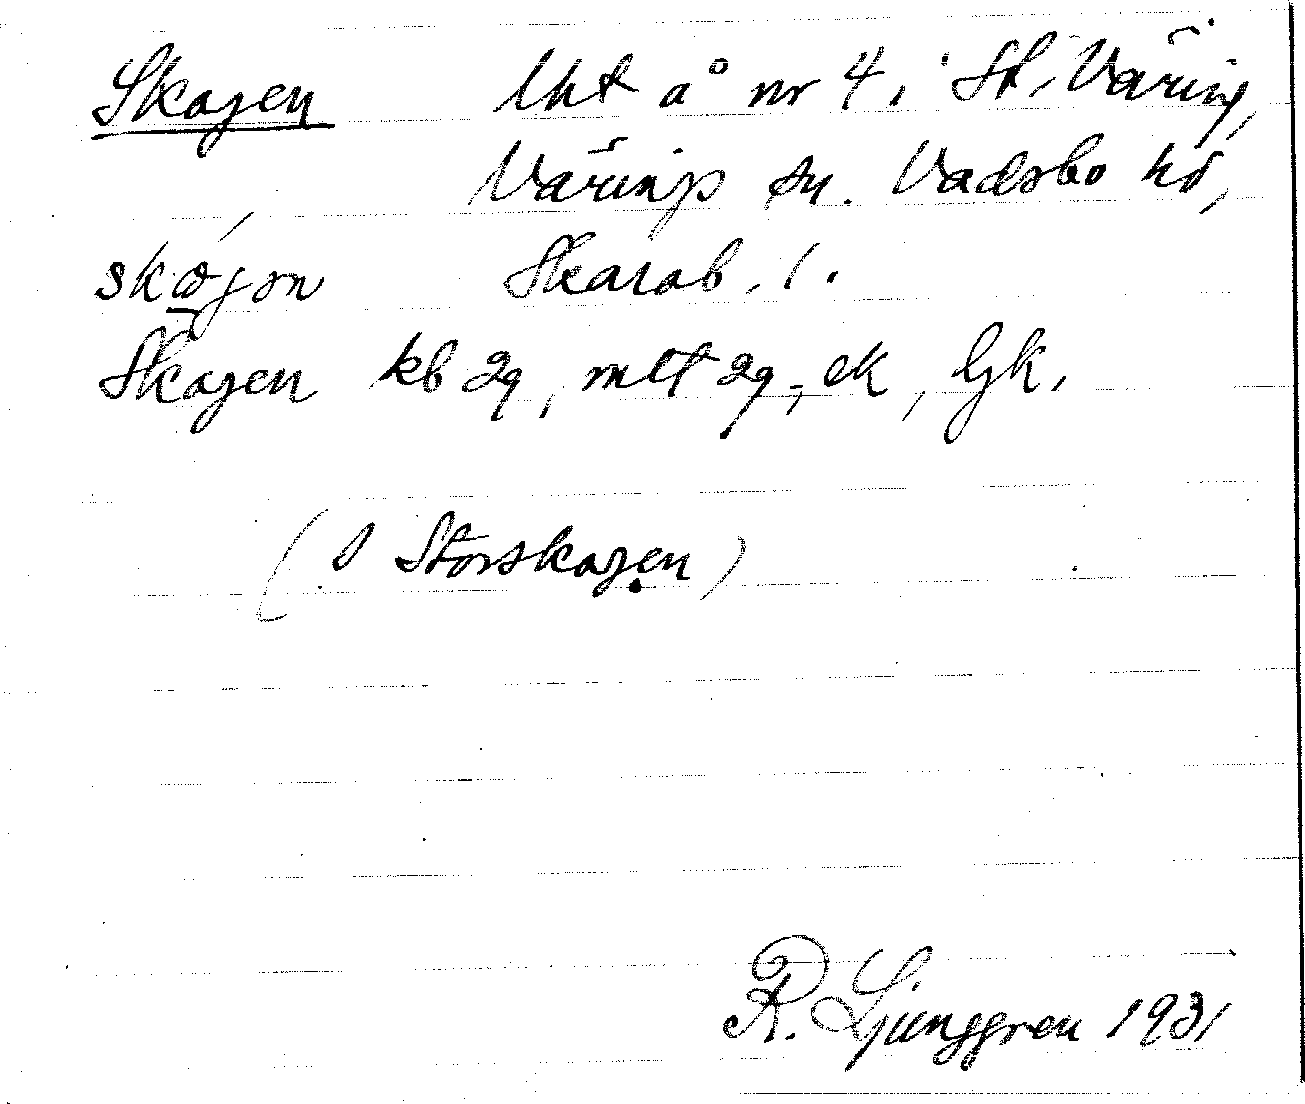 Skogen lht å nr 4, St. Väring,
Värings sn. Vadsbo hd,
skogon Skarab. l.
Skogen kb 29, mlt 29, ek, Gk.
(I Storskogen)
R. Ljunggren 1931